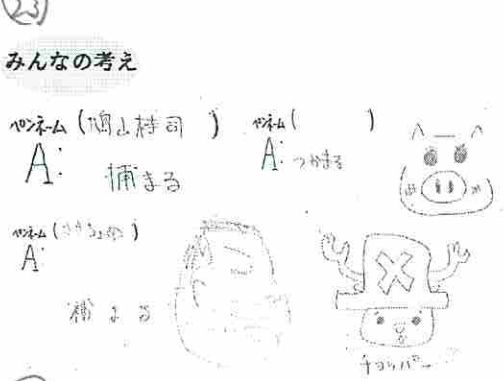 23
みんなの考え
ペンネーム ( 鳩山桂司 )
A:
捕まる
ペンネーム ( )
A: つかまる
ペンネーム ( )
A:
捕まる
チョッパー